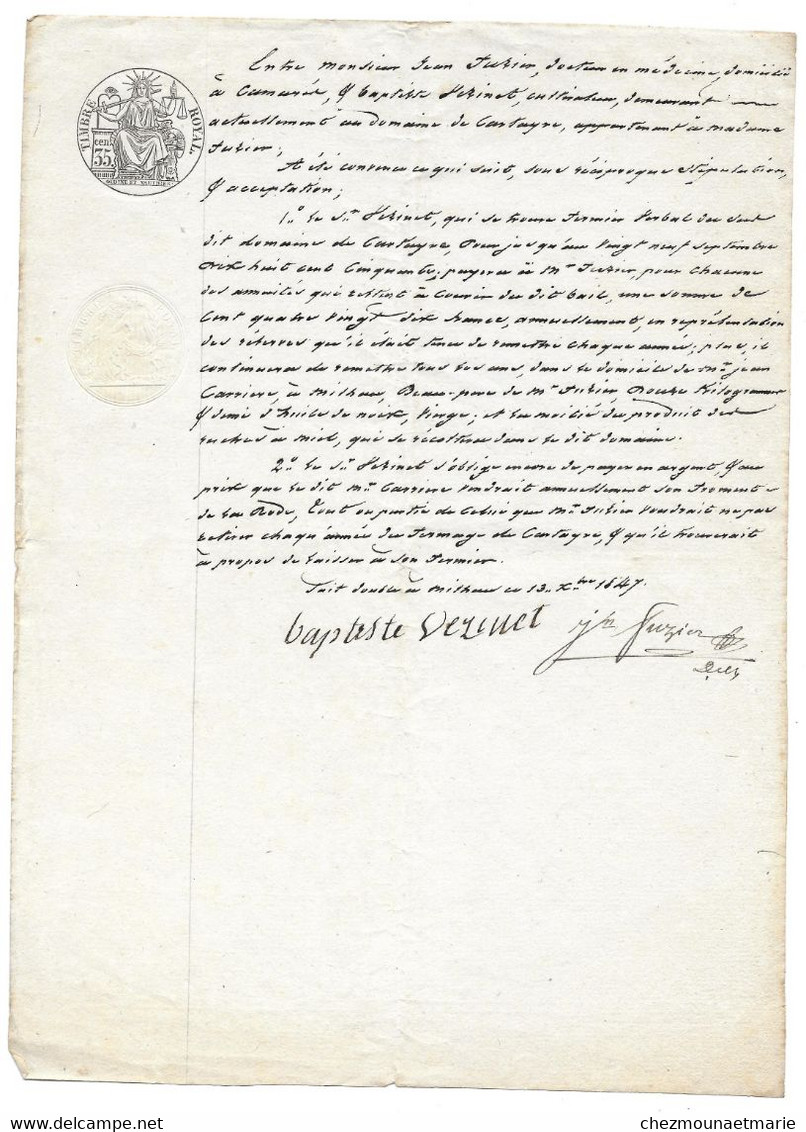 TIMBRE ROYAL.
cent.
35
Entre monsieur Jean Fuzier, docteur en médecine, domicilié
à Camarés, & baptiste Vezinet, cultivateur, demeurant
actuellement au domaine de Cartayre, appartenant à madame
Fuzier;
A été convenu ce qui suit, sous réciproque stipulation,
& acceptation;
1.° le s.r Vezinet, qui se trouve Fermier Verbal du sus
dit domaine de Cartayre, pour jusqu'au vingt neuf septembre
dix huit cent cinquante; payera à M.r Fuzier, pour chacune
des annuités qui restent à Courir du dit bail, une somme de
Cent quatre vingt dix francs, annuellement, en représentation
des réserves qu'il était tenu de remettre chaque année; plus, il
continuera de remettre tous les ans, dans le domicile de M.r jean
Carriere, à Milhau, Beau-pere de M.r Fuzier, Douze Kilogrammes
& demi d'huile de noix, Vierge; et la moitié du produit des
ruches à miel, qui se récoltera dans le dit domaine.
2.° le s.r Vezinet s'oblige encore de payer en argent, & au
prix que le dit M.r Carriere vendrait annuellement son Froment
de la Rode, tout ou partie de Celui que M.r Fuzier voudrait ne pas
retirer chaqu'année du Fermage de Cartayre, & qu'il trouverait
à propos de laisser à son Fermier.
Fait double à Milhau ce 13. X.bre 1847.
baptiste Vezinet
j.n Fuzier
chezmounaetmarie